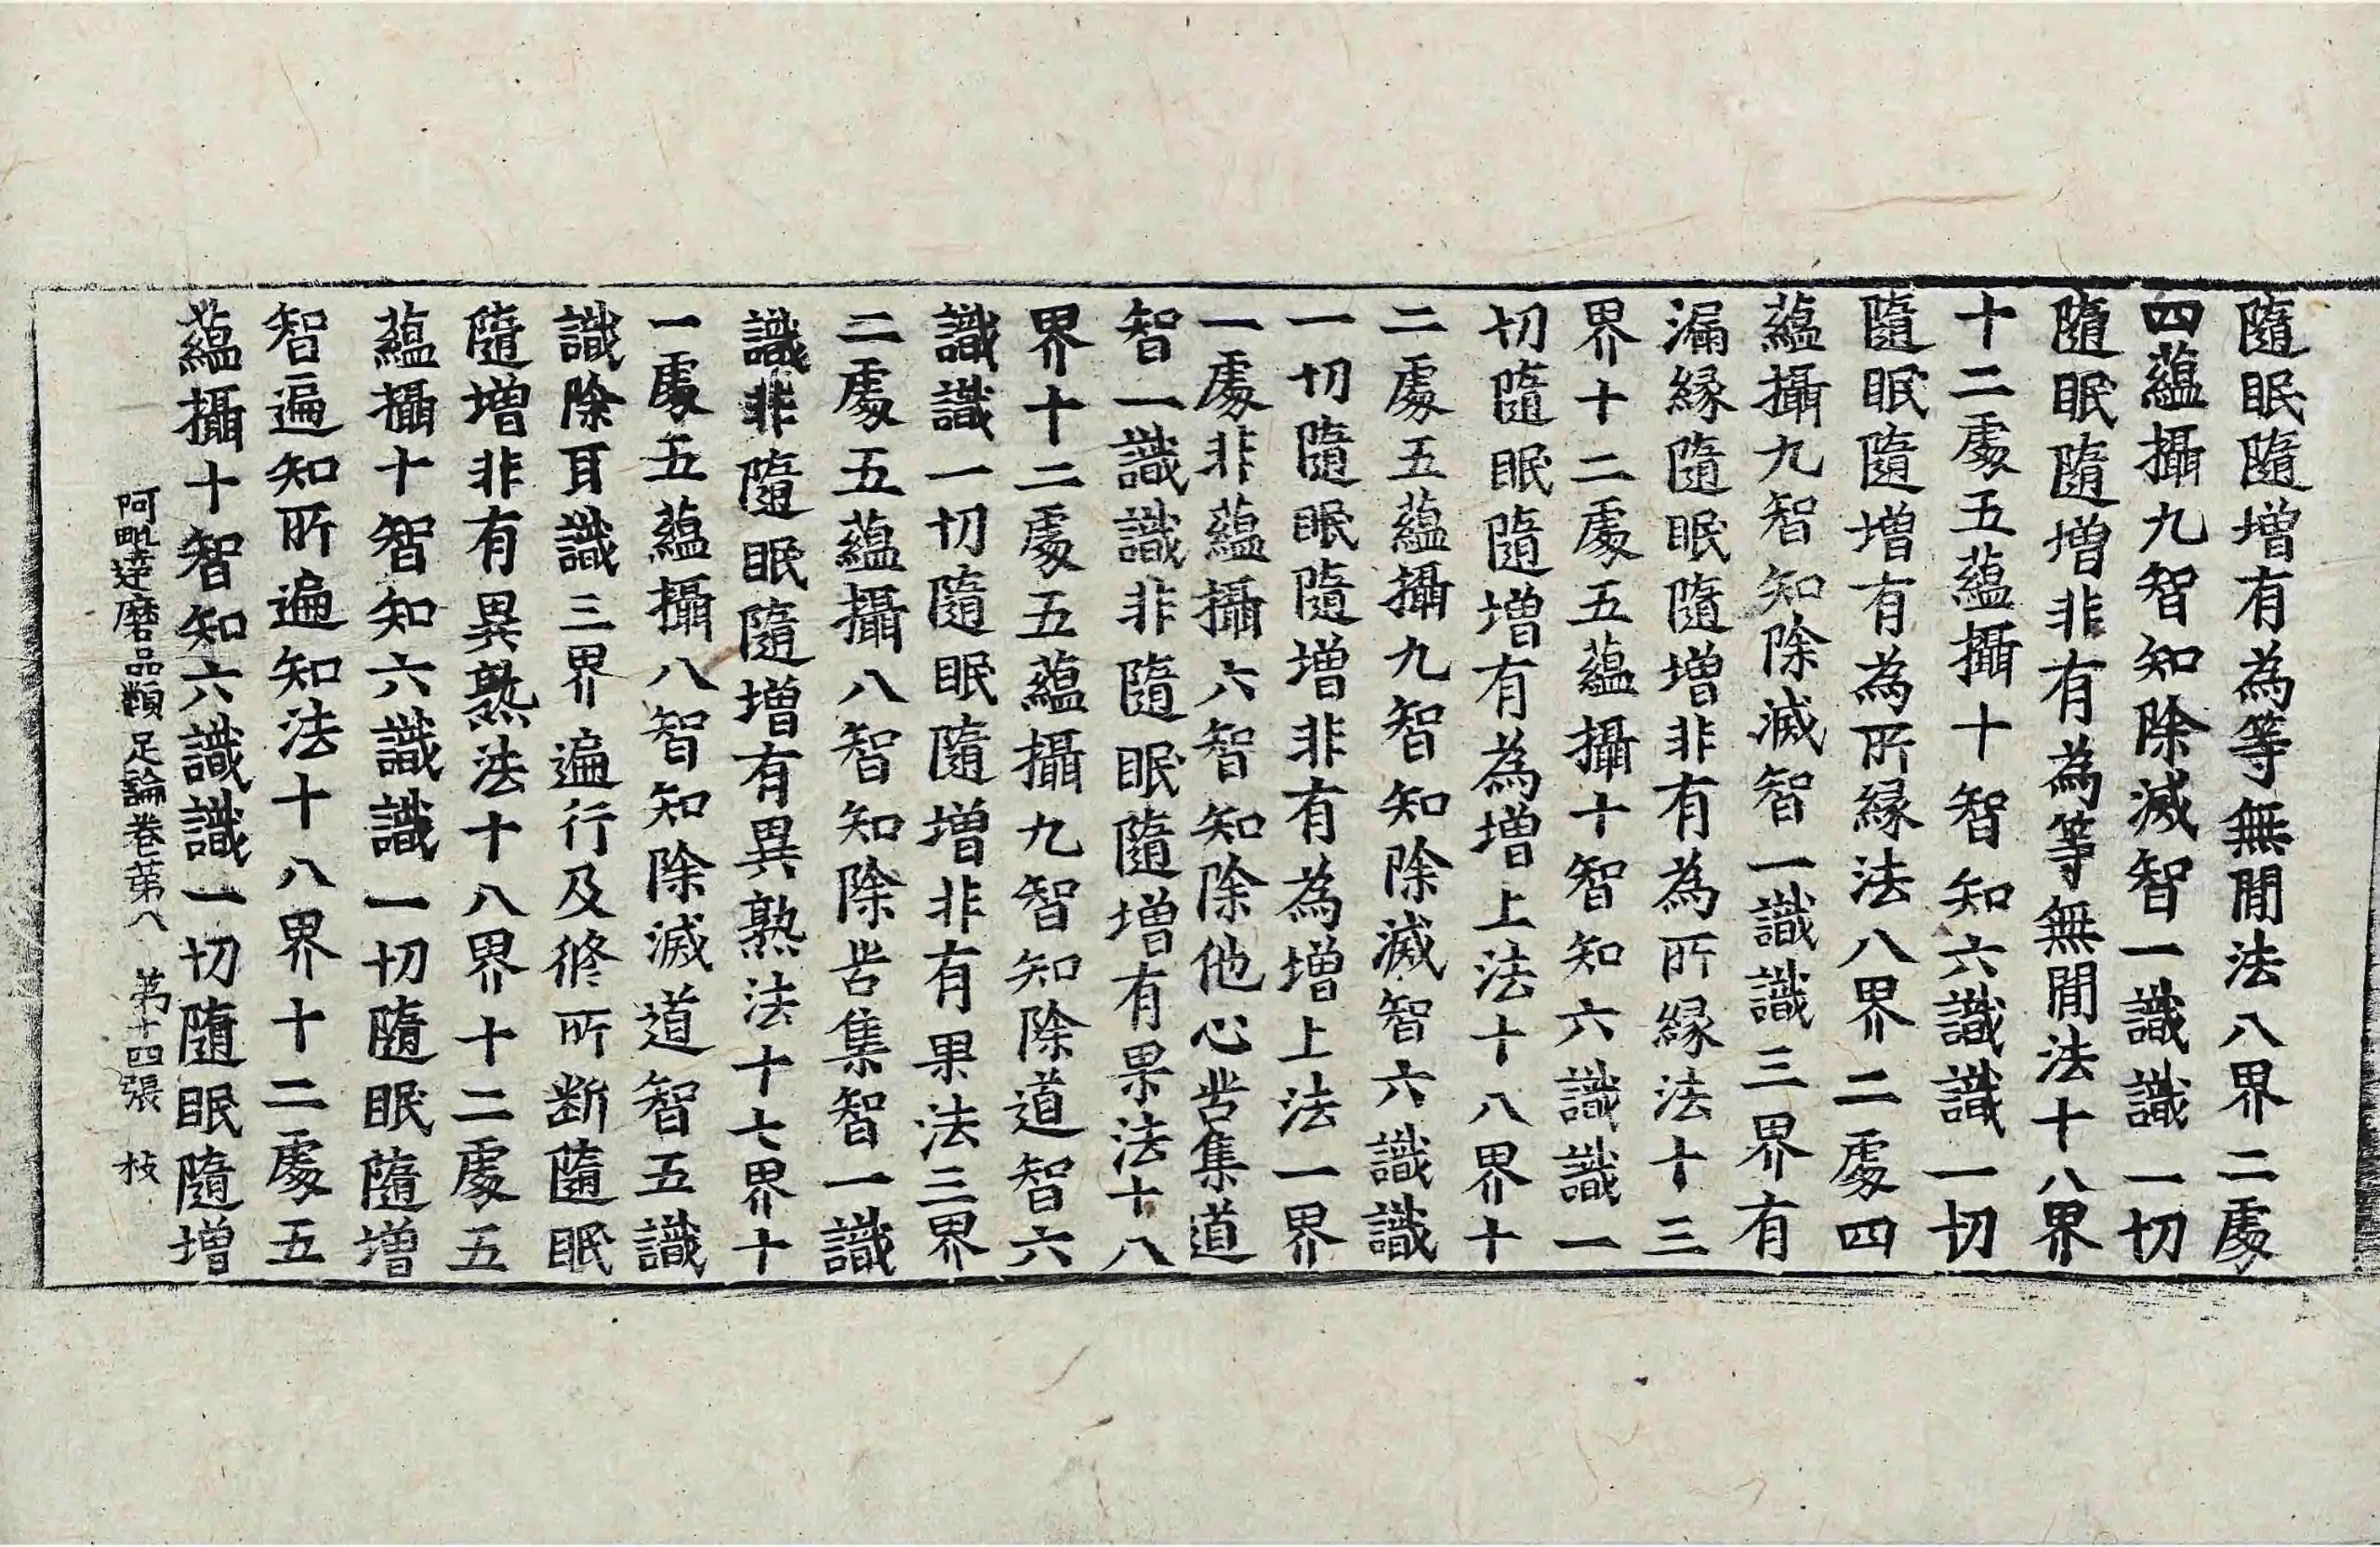 隨眠隨增有為等無間法八界二處
四蘊攝九智知除滅智一識識一切
隨眠隨增非有為等無間法十八界
十二處五蘊攝十智知六識識一切
隨眠隨增有為所緣法八界二處四
蘊攝九智知除滅智一識識三界有
漏緣隨眠隨增非有為所緣法十三
界十二處五蘊攝十智知六識識一
切隨眠隨增有為增上法十八界十
二處五蘊攝九智知除滅智六識識
一切隨眠隨增非有為增上法一界
一處非蘊攝六智知除他心苦集道
智一識識非隨眠隨增有果法十八
界十二處五蘊攝九智知除道智六
識識一切隨眠隨增非有果法三界
二處五蘊攝八智知除苦集智一識
識非隨眠隨增有異熟法十七界十
一處五蘊攝八智知除滅道智五識
識除耳識三界遍行及修所斷隨眠
隨增非有異熟法十八界十二處五
蘊攝十智知六識識一切隨眠隨增
智遍知所遍知法十八界十二處五
蘊攝十智知六識識一切隨眠隨增
阿毗達磨品類足論卷第八 第十四張 枝